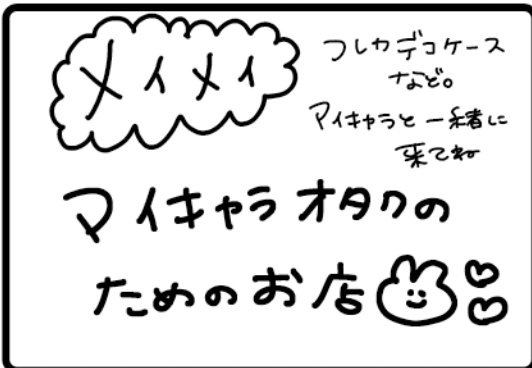 メイメイ
フレカデコケース
など。
マイキャラと一緒に
来てね
マイキャラオタクの
ためのお店